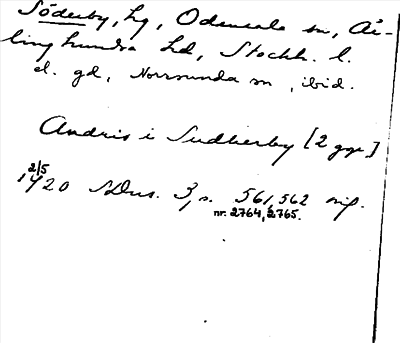 Söderby, hg, Odensala sn, Är-
linghundra hd, Stockh. l.
el. gd, Norrsunda sn, ibid.
Andris i Sudherby [2 ggr]
2/5
1420 SDns. 3, s. 561, 562 nif.
nr. 2764, 2765.